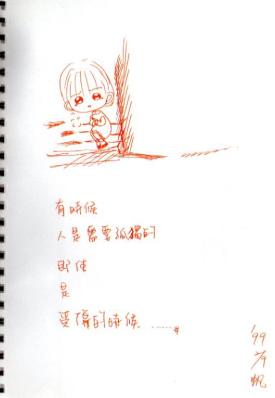 有時候
人是需要孤獨的
即使
是
受傷的時候......#
'99
帆